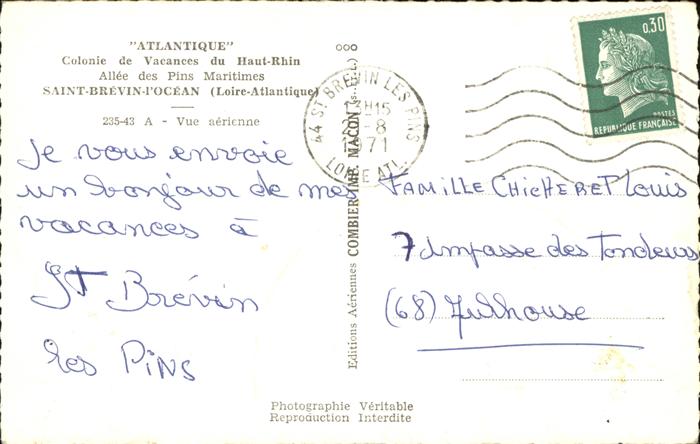 "ATLANTIQUE"
Colonie de Vacances du Haut-Rhin
Allée des Pins Maritimes
SAINT-BRÉVIN-l'OCÉAN (Loire-Atlantique)
235-43 A - Vue aérienne
Je vous envoie
un bonjour de mes
vacances à
St Brévin
les PiNS
Editions Aériennes COMBIER IMP. MACON
44 ST BREVIN LES PINS
13H15
-8
1971
LOIRE ATL.
0,30
POSTES
REPUBLIQUE FRANÇAISE
FAMILLE CHICHERET Louis
7 Impasse des Tondeurs
(68) Mulhouse
Photographie Véritable
Reproduction Interdite